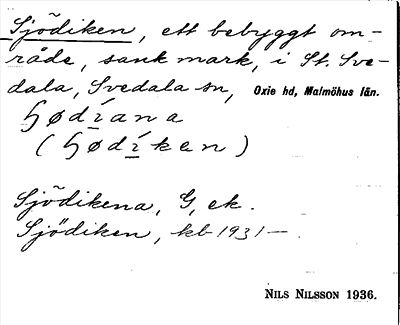 Sjödiken, ett bebyggt om-
råde, sank mark, i St. Sve-
dala, Svedala sn, Oxie hd, Malmöhus län.
ɧødíana
(ɧødíkən)
Sjödikena, G, ek.
Sjödiken, kb 1931—
NILS NILSSON 1936.